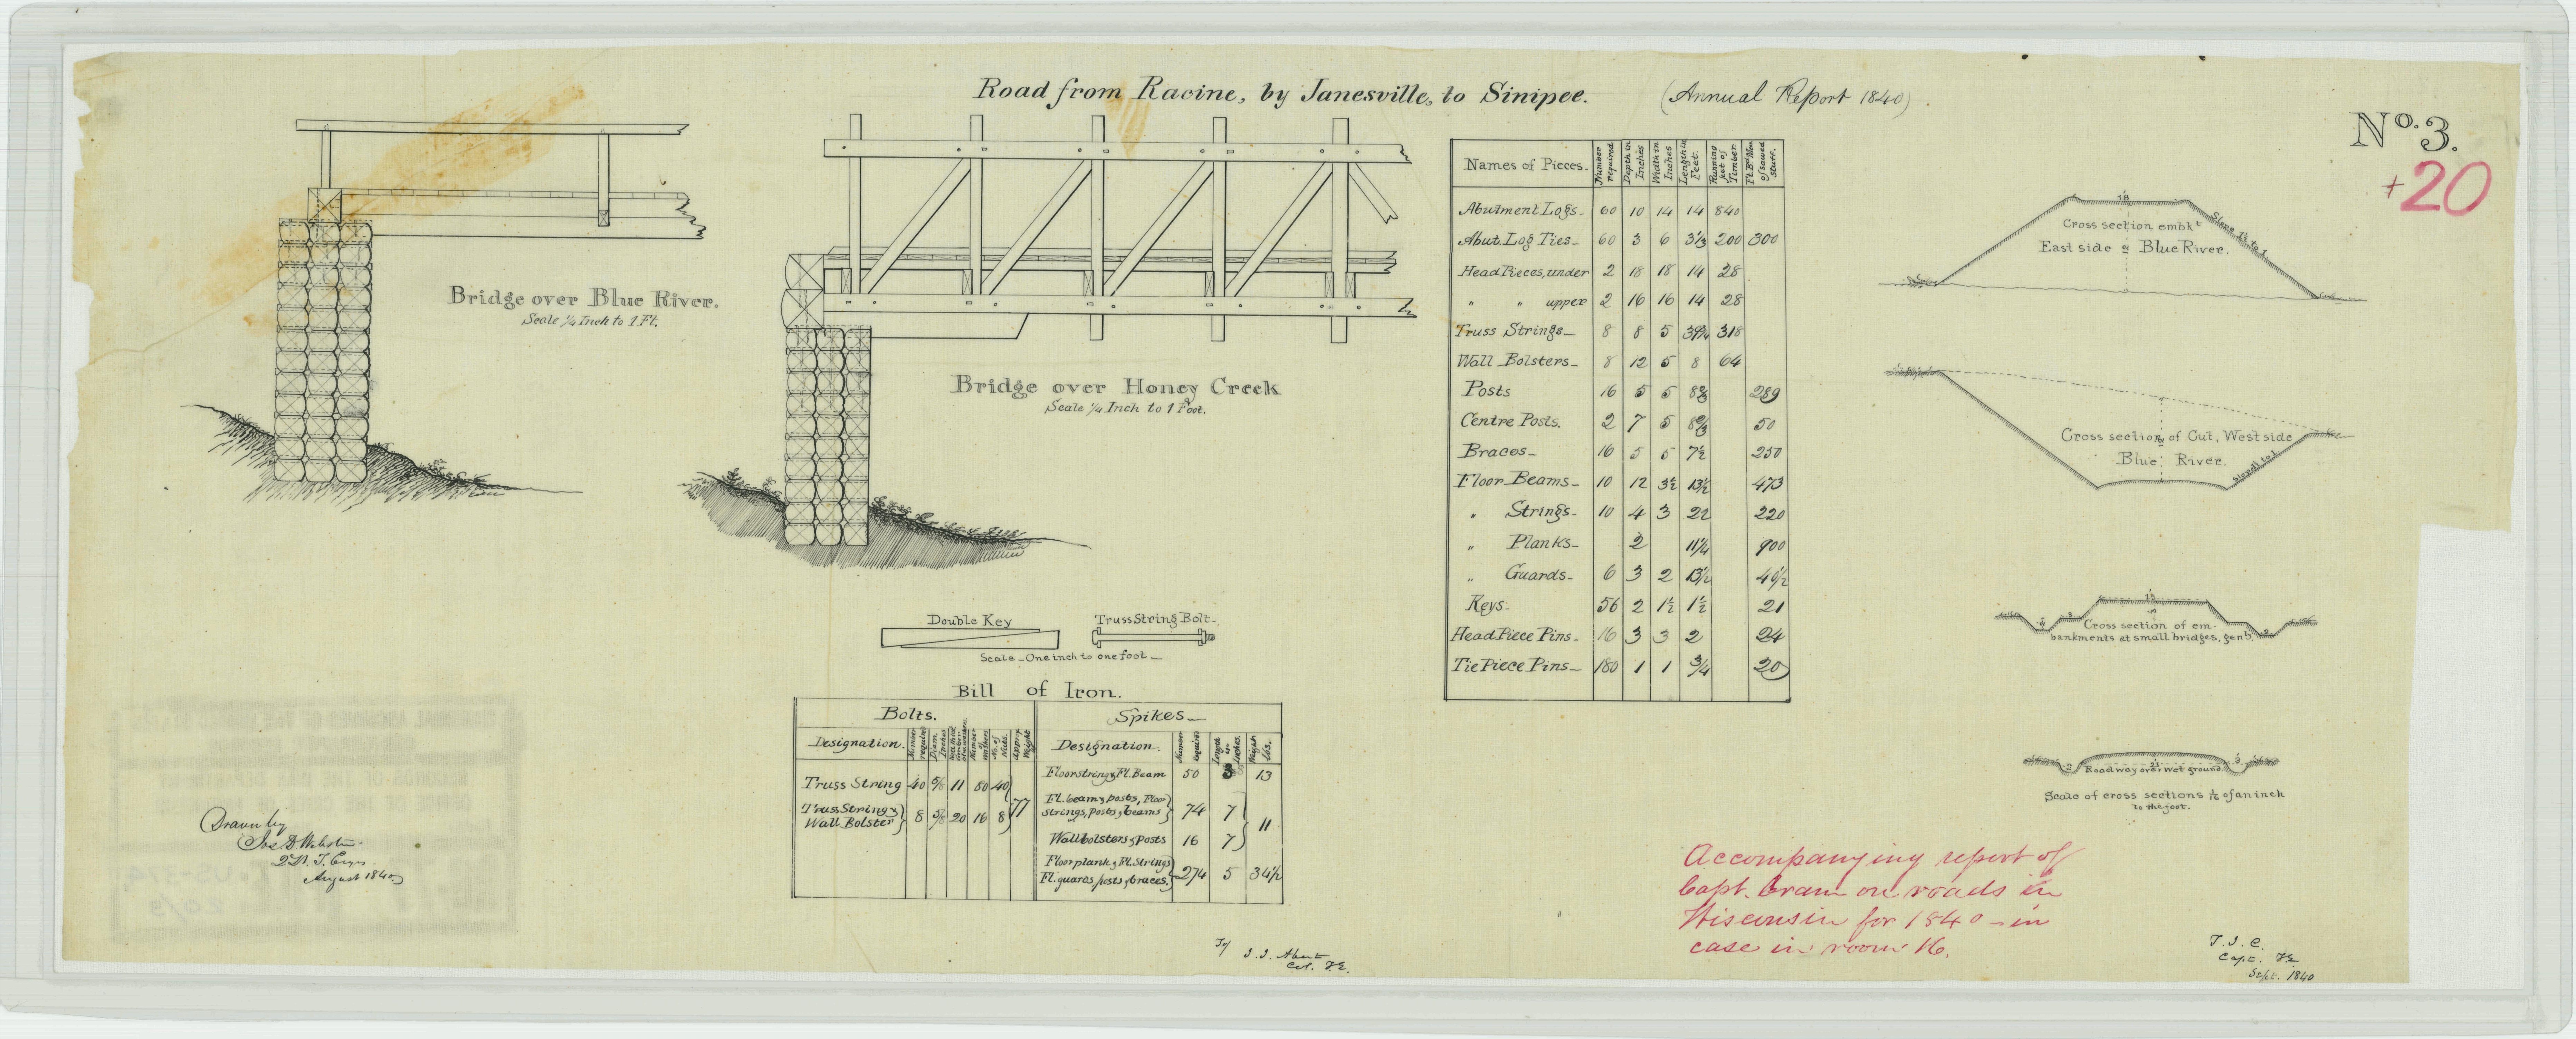 Road from Racine, by Janesville, to Sinipee. (Annual Report 1840).
No. 3.
+20
Bridge over Blue River.
Scale 1/4 Inch to 1 Ft.
Bridge over Honey Creek
Scale 1/4 Inch to 1 Foot.
Names of Pieces. Number required. Depth in Inches Width in Inches Length in Feet. Running feet of Timber Ft. Bd. Mea. of sawed stuff.
Abutment Logs 60 10 14 14 840
Abut. Log Ties 60 3 6 3 1/3 200 300
Head Pieces, under 2 18 18 14 28
" " upper 2 16 16 14 28
Truss Strings 8 8 5 39 3/4 318
Wall Bolsters 8 12 5 8 64
Posts 16 5 5 8 2/3 289
Centre Posts. 2 7 5 8 2/3 50
Braces 16 5 5 7 1/2 250
Floor Beams 10 12 3 1/2 13 1/2 473
" Strings 10 4 3 22 220
" Planks 2 11 1/4 900
" Guards 6 3 2 13 1/2 40 1/2
Keys 56 2 1 1/2 1 1/2 21
Head Piece Pins 16 3 3 2 24
Tie Piece Pins 180 1 1 3/4 20
Cross section embkt
East side of Blue River.
Slope 1 1/2 to 1
Cross section of Cut, West side
Blue River.
Slope 1 to 1
Cross section of em-
bankments at small bridges, genl.
Roadway over wet ground
Scale of cross sections 1/12 of an inch
to the foot.
Double Key
Truss String Bolt
Scale One inch to one foot
Bill of Iron.
Bolts. Spikes
Designation. Number required Diam. Inches Number of washers No. of Nuts. Approx. Weight
Designation. Number required Length in inches. Weight lbs.
Truss String 40 5/8 11 80 40
Truss String & Wall Bolster 8 5/8 20 16 8 77
Floor string & Fl. Beam 50 13
Fl. beam & posts, Floor
strings, posts, & beams 74 7
Wall bolsters & posts 16 7 11
Floor plank & Fl. Strings
Fl. guards, posts, & braces. 274 5 34 1/2
Drawn by
Jos. D. Webster
2d Lt. T. Engrs.
August 1840
To J. J. Abert
Col. T.E.
Accompanying report of
Capt. Cram on roads in
Wisconsin for 1840 - in
case in room 16.
T. J. C.
Capt. T.E.
Sept. 1840